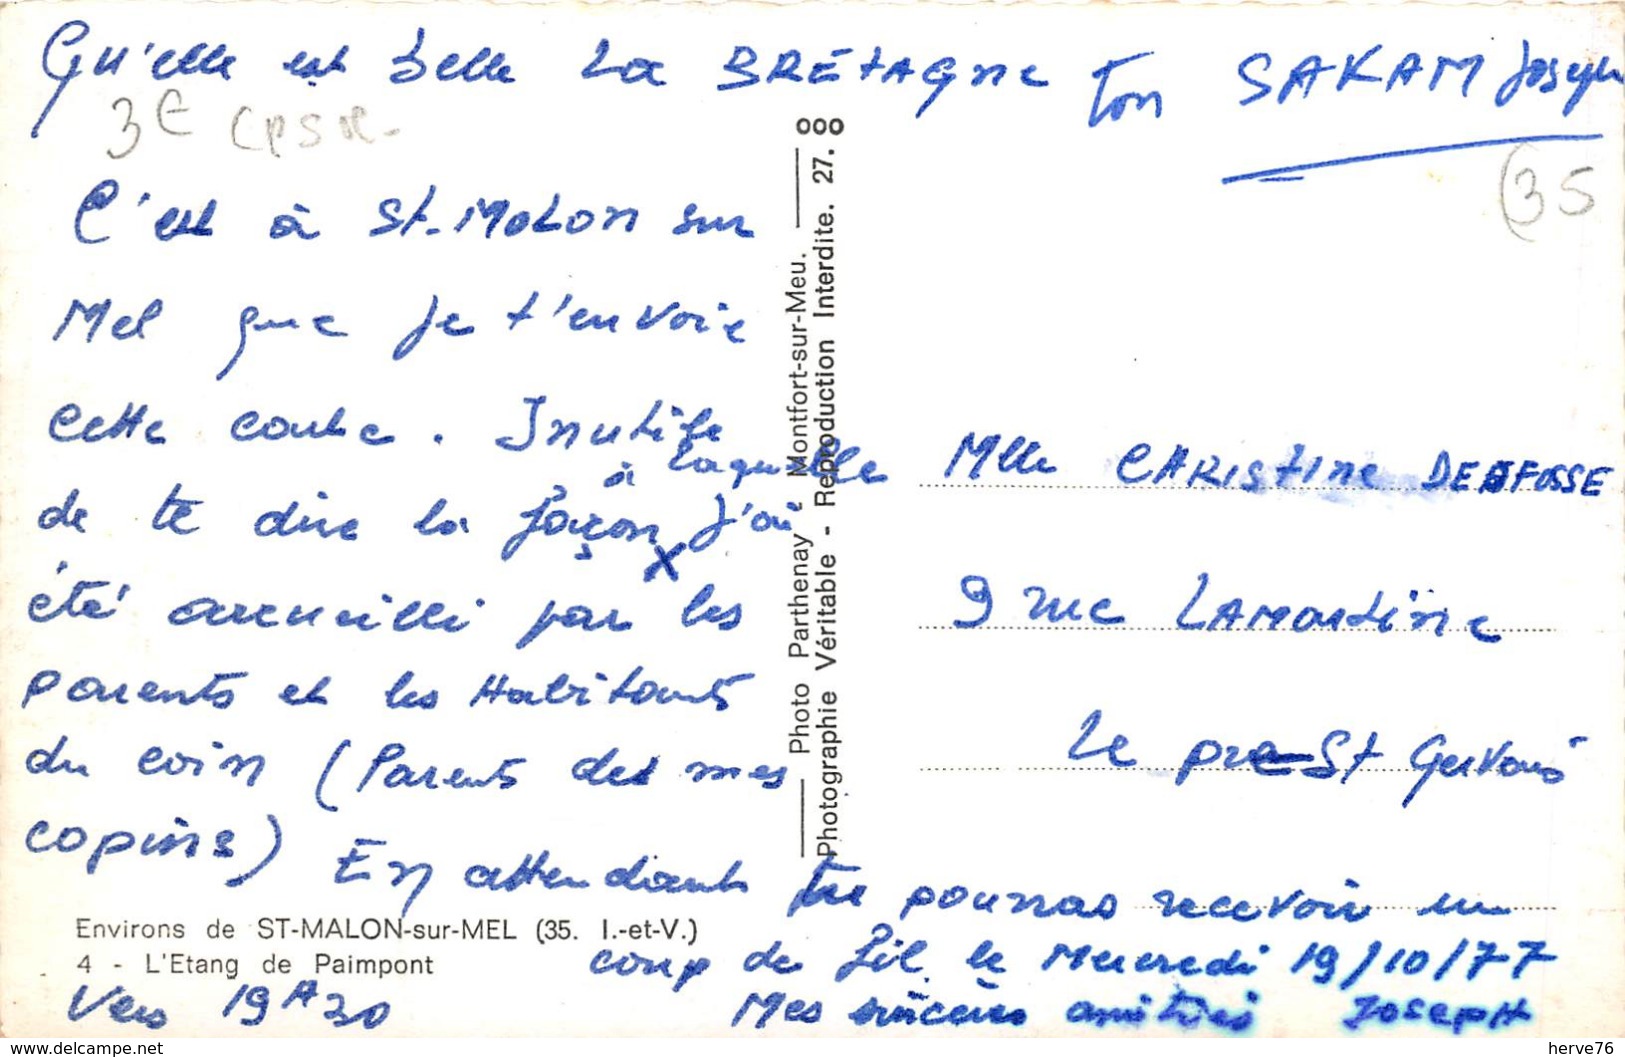 Qu'elle est belle La BRETAGne ton SAKAM Joseph
3E CPSM-
(35
C'est à St-MALON sur
Mel que je t'envoie
cette carte. Inutile
de te dire la façon à laquelle j'ai
été accueilli par les
parents et les Habitants
du coin (Parents de mes
copins) En attendant tu pourras recevoir un
coup de fil le Mercredi 19/10/77
Vers 19H30
Mes sincères amitiés JOSEPH
Environs de ST-MALON-sur-MEL (35. I.-et-V.)
4 - L'Etang de Paimpont
Photo Parthenay - Montfort-sur-Meu.
Photographie Véritable - Reproduction Interdite. 27. 000
Mlle CHRIStine DEFOSSE
9 rue LAMartine
Le pré St Gervais
herve76